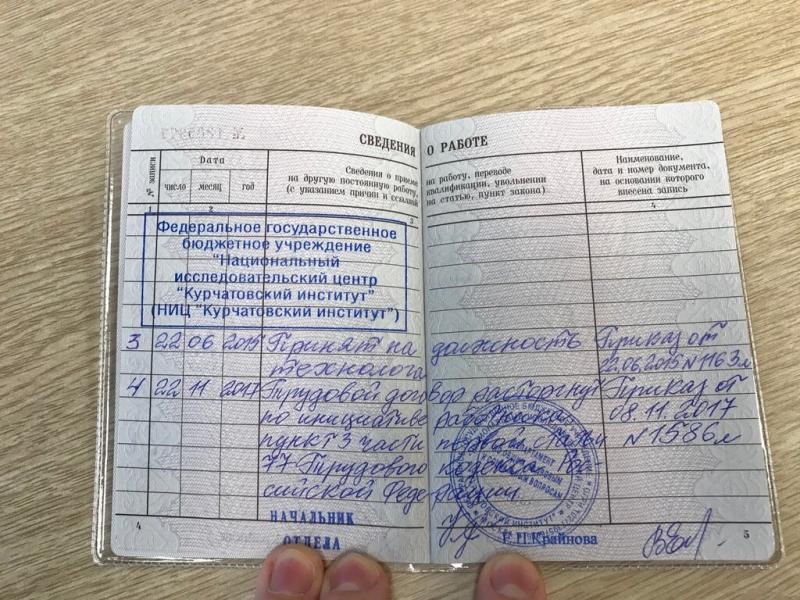 СВЕДЕНИЯ О РАБОТЕ
№ записи
Дата
число месяц год
Сведения о приеме на работу, переводе
на другую постоянную работу, квалификации, увольнении
(с указанием причин и ссылкой на статью, пункт закона)
Наименование,
дата и номер документа,
на основании которого
внесена запись
1 2 3 4
Федеральное государственное
бюджетное учреждение
"Национальный
исследовательский центр
"Курчатовский институт"
(НИЦ "Курчатовский институт")
3 22 06 2015 Принят на должность Приказ от
технолога 22.06.2015 N1163л
4 22 11 2017 Трудовой договор расторгнут Приказ от
по инициативе работника 08.11.2017
пункт 3 части первой статьи N1586л
77 Трудового кодекса Рос
сийской Федерации
НАЧАЛЬНИК
ОТДЕЛА
Крайнова
4
5